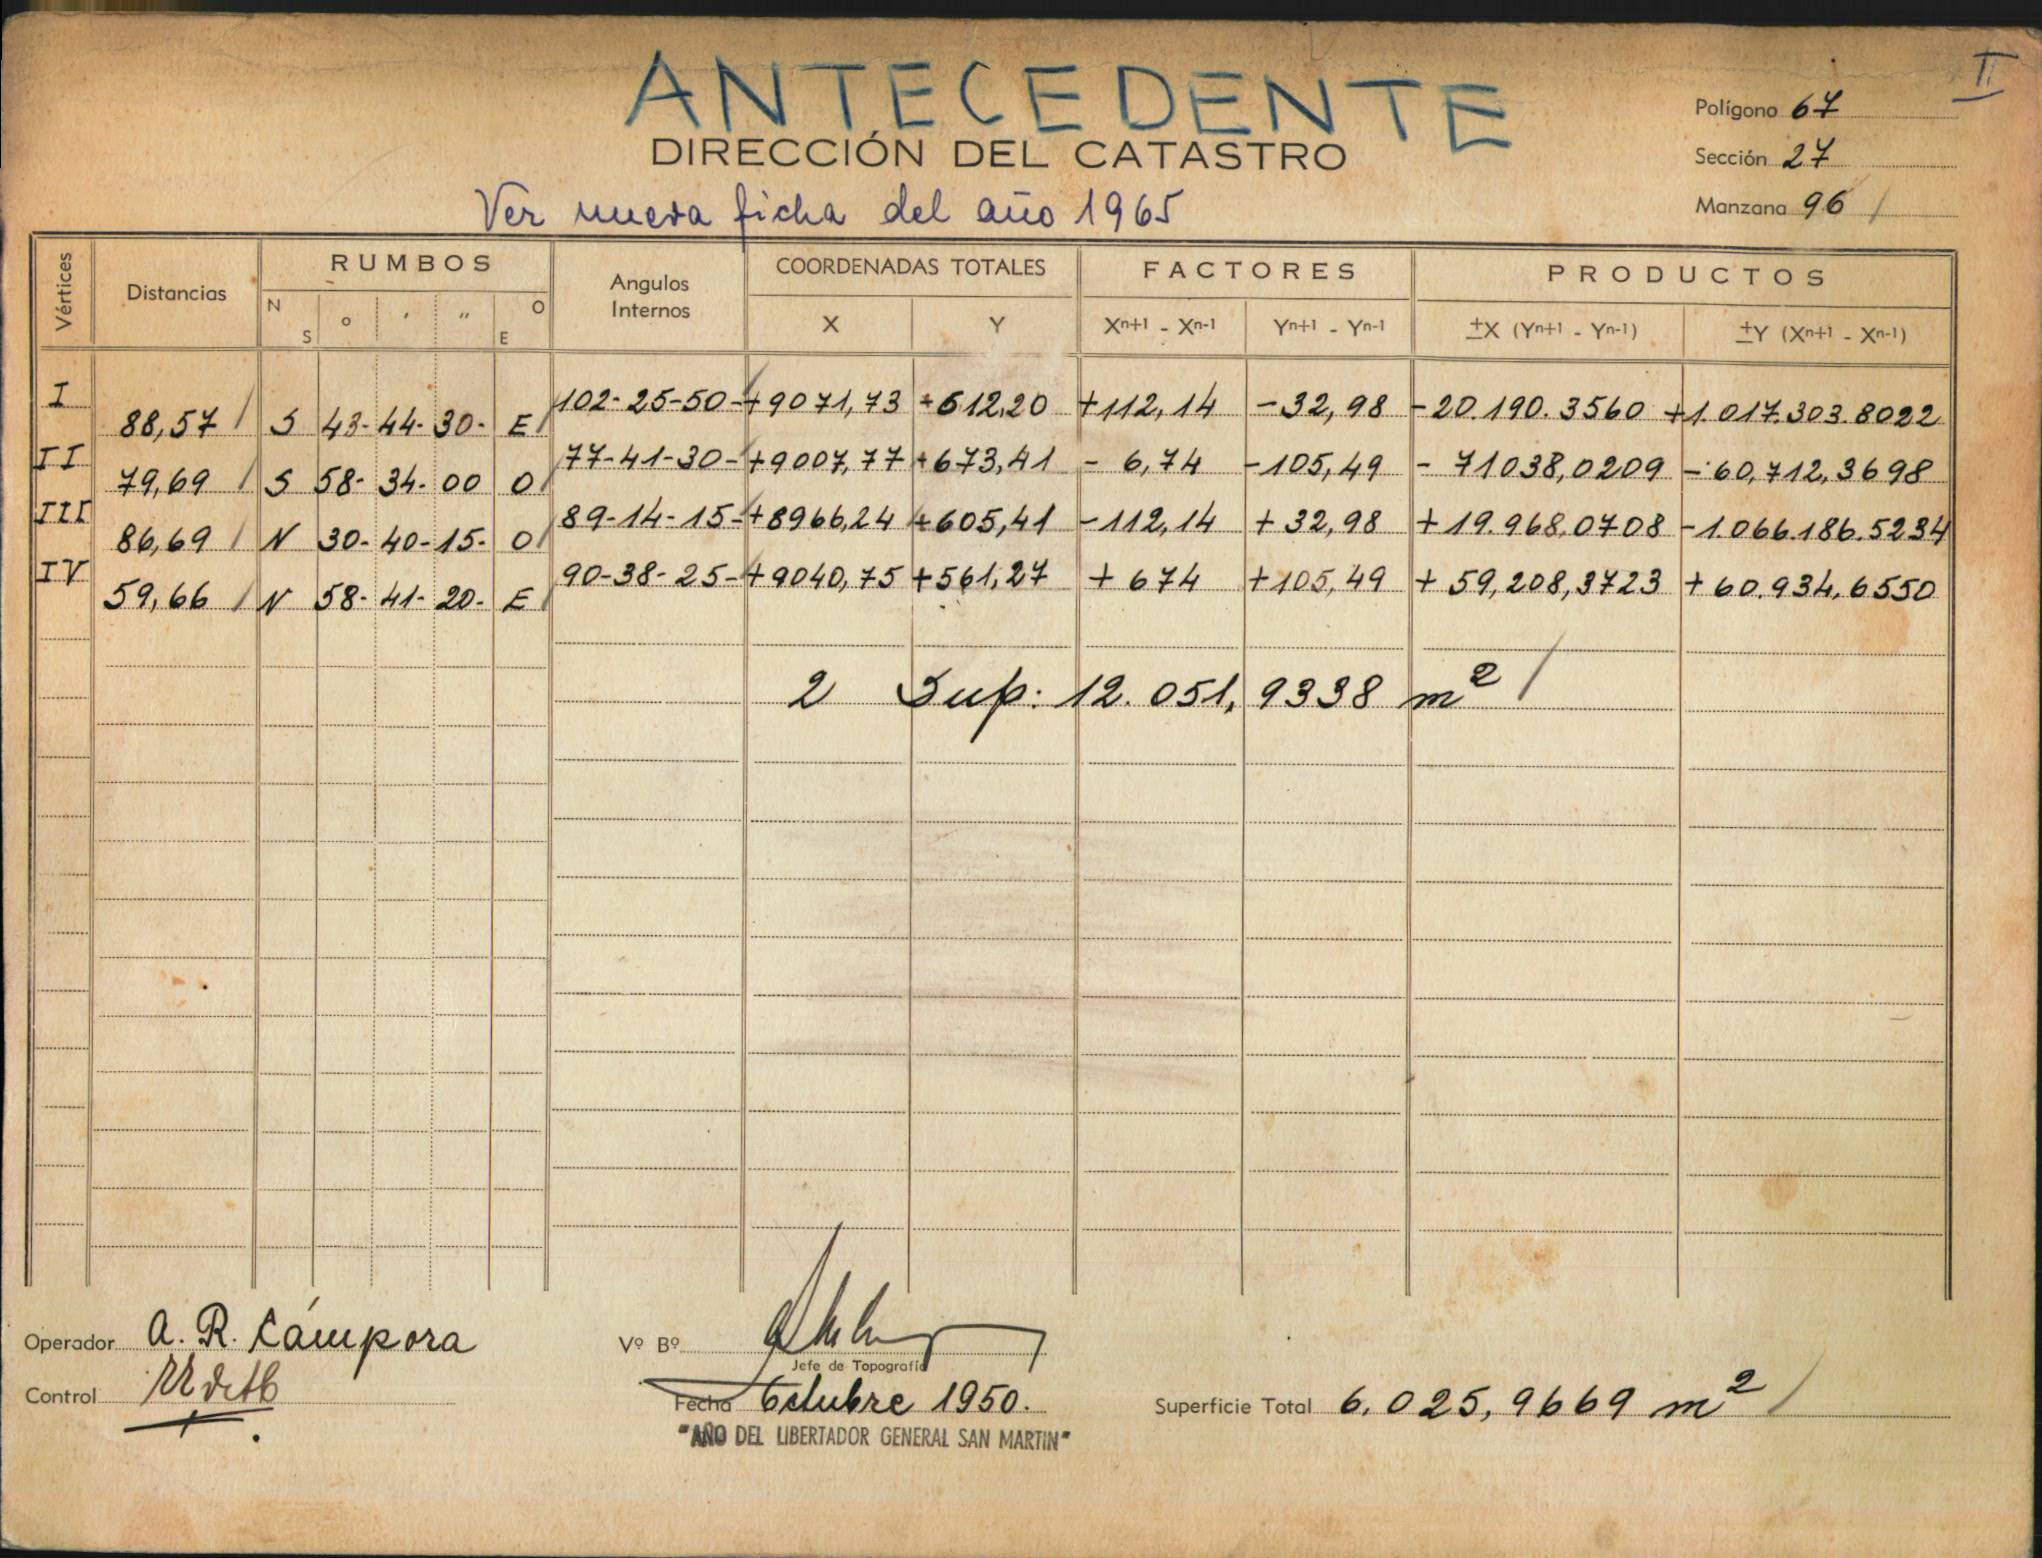 II
ANTECEDENTE
DIRECCIÓN DEL CATASTRO
Ver nueva ficha del año 1965
Polígono 67
Sección 27
Manzana 96
Vértices Distancias RUMBOS Angulos Internos COORDENADAS TOTALES FACTORES PRODUCTOS
N S ° ' " O E X Y Xn+1 - Xn-1 Yn+1 - Yn-1 ±X (Yn+1 - Yn-1) ±Y (Xn+1 - Xn-1)
I 88,57 S 43- 44- 30- E 102-25-50- +9071,73 +612,20 +112,14 -32,98 -20.190.3560 +1.017.303.8022
II 79,69 S 58- 34- 00 O 77-41-30- +9007,77 +673,41 - 6,74 -105,49 - 71038,0209 - 60,712,3698
III 86,69 N 30- 40- 15- O 89-14-15- +8966,24 +605,41 -112,14 + 32,98 + 19.968,0708 -1.066.186.5234
IV 59,66 N 58- 41- 20- E 90-38-25- +9040,75 +561,27 + 674 +105,49 + 59,208,3723 + 60.934,6550
2 Sup: 12.051,9338 m²
Operador A. R. Cámpora
Vº Bº
Jefe de Topografía
Control
Fecha Octubre 1950.
Superficie Total 6.025,9669 m²
"AÑO DEL LIBERTADOR GENERAL SAN MARTIN"